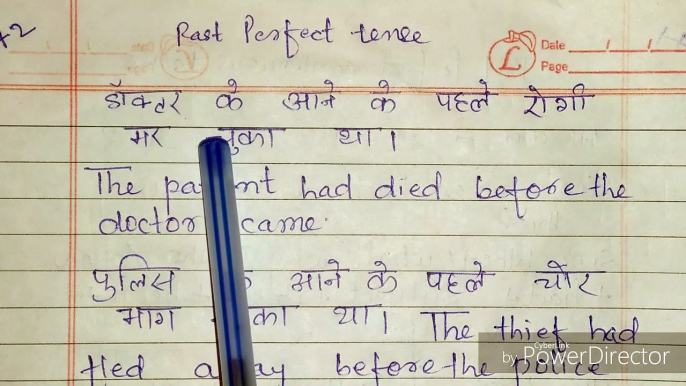 Past Perfect tense
Date
Page
L
डॉक्टर के आने के पहले रोगी
मर चुका था।
The patient had died before the
doctor came.
पुलिस के आने के पहले चोर
भाग चुका था। The thief had
fled away before the police
CyberLink
by PowerDirector